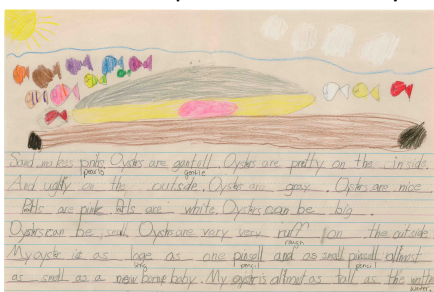 Sand makes prils. Oysters are gantoll. Oysters are pretty on the inside.
pearls gentle
And uglly on the outside. Oysters are gray. Oysters are nice.
Prils are pink. Prils are white. Oysters can be big.
Oysters can be small. Oysters are very very ruff on the outside.
rough
My oyster is as loge as one pinsell and as small pinsell allmost
long pencil pencil
as small as a new borne baby. My oyster is allmost as tall as the
water.